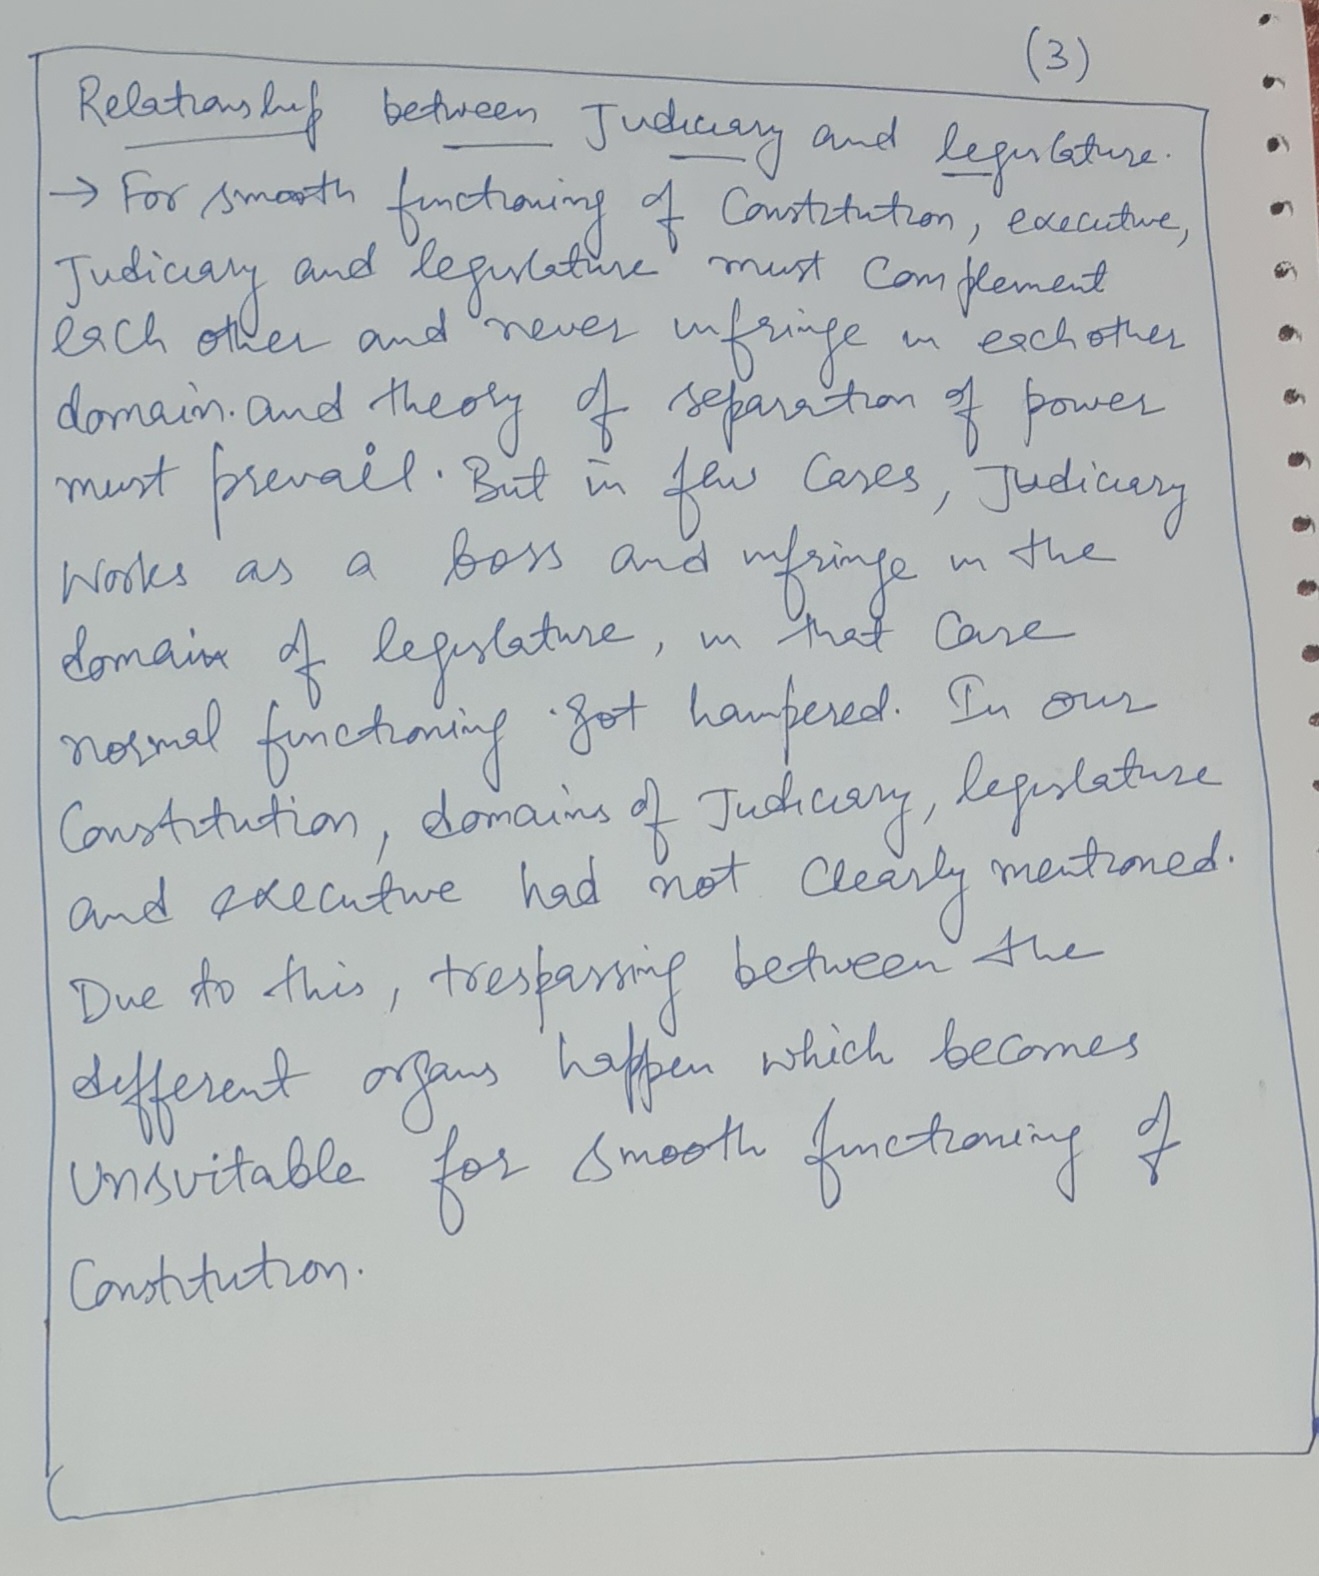 (3)
Relationship between Judiciary and legislature.
→ For smooth functioning of Constitution, executive,
Judiciary and legislature must Complement
each other and never infringe in each other
domain. and theory of separation of power
must prevail. But in few Cases, Judiciary
Works as a boss and infringe in the
domain of legislature, in that Case
normal functioning got hampered. In our
Constitution, domains of Judiciary, legislature
and executive had not Clearly mentioned.
Due to this, trespassing between the
different organs happen which becomes
Unsuitable for smooth functioning of
Constitution.